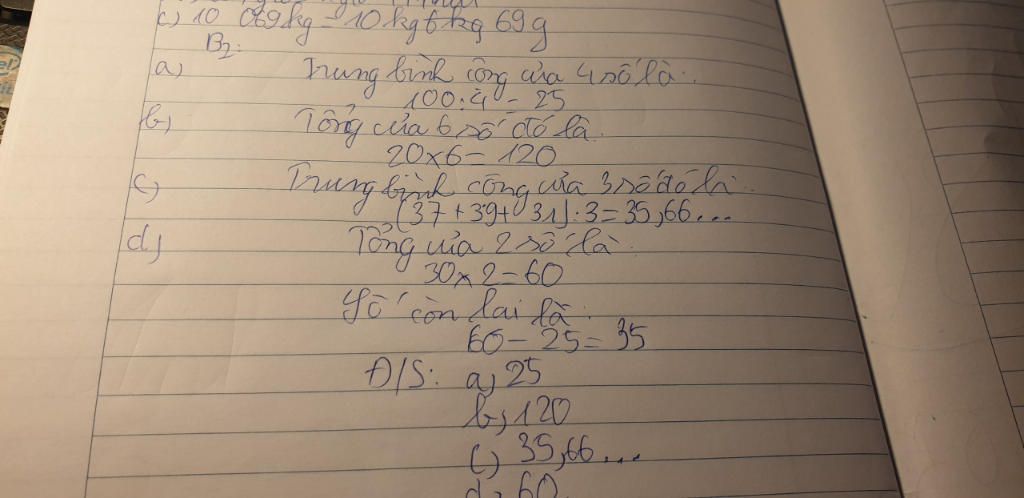 c) 10 069kg = 10kg 6kg 69g
B2:
a) Trung bình cộng của 4 số là:
100:4 = 25
b) Tổng của 6 số đó là:
20x6 = 120
c) Trung bình cộng của 3 số đó là:
(37 + 39 + 31) : 3 = 35,66...
d) Tổng của 2 số là:
30x2 = 60
Số còn lại là:
60 - 25 = 35
Đ/S: a, 25
b, 120
c) 35,66...
d, 60